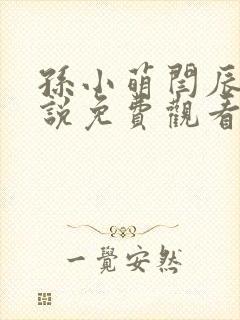 孫小萌閆辰
說免費觀看
一覺安然